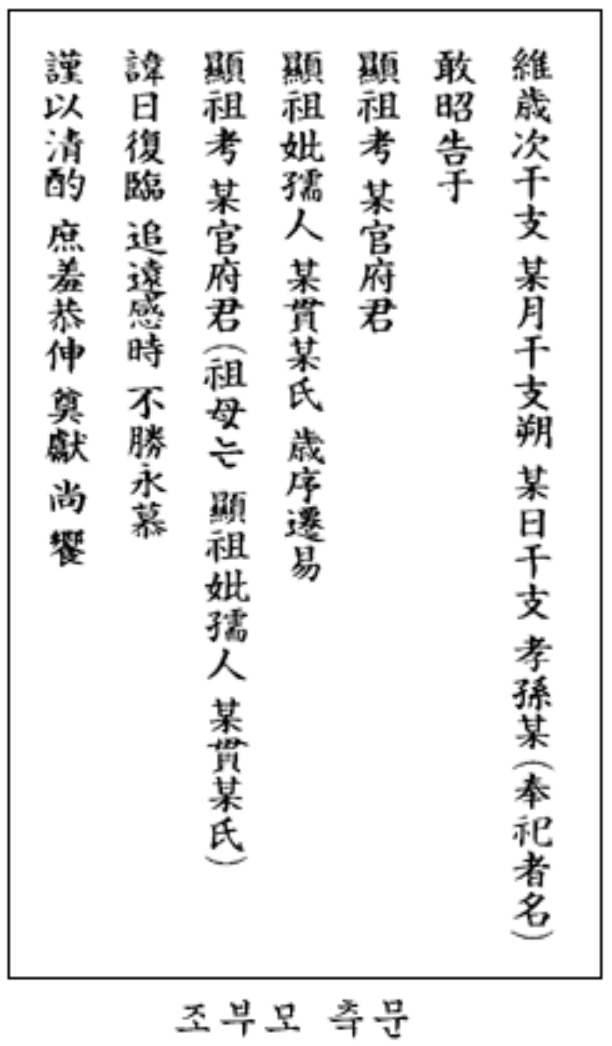 維歲次干支 某月干支朔 某日干支 孝孫某(奉祀者名)
敢昭告于
顯祖考 某官府君
顯祖妣孺人 某貫某氏 歲序遷易
顯祖考 某官府君(祖母는 顯祖妣孺人 某貫某氏)
諱日復臨 追遠感時 不勝永慕
謹以清酌 庶羞恭伸 奠獻 尚饗
조부모 축문